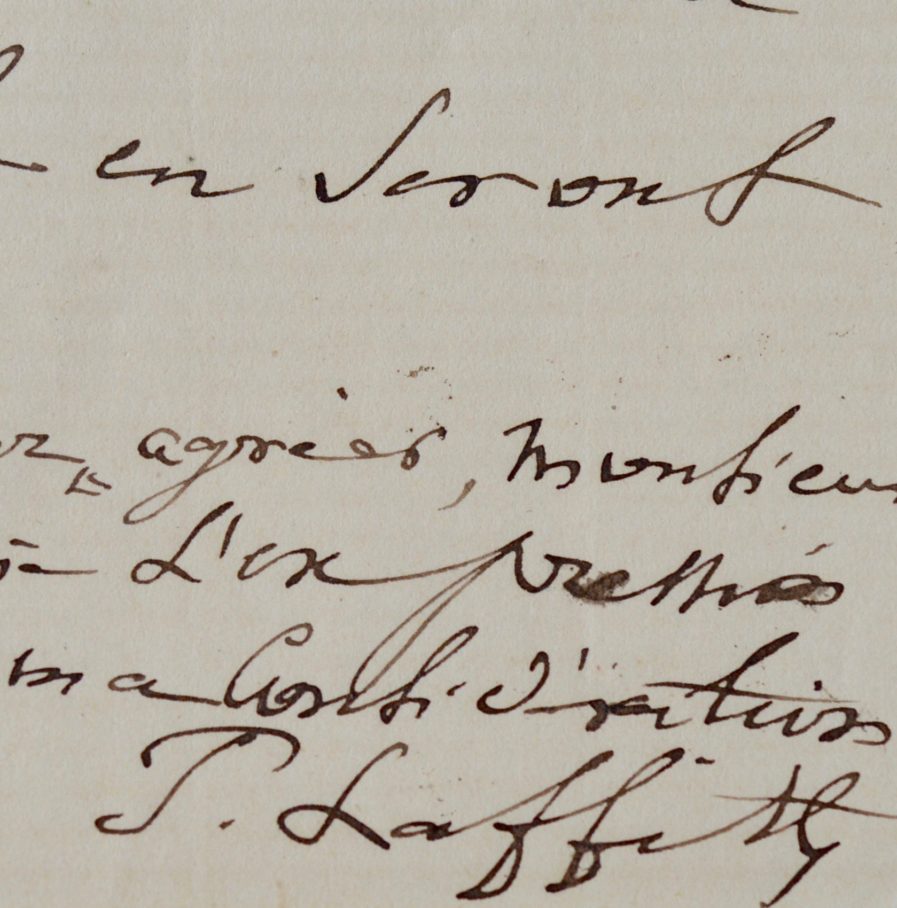 en seront
agréer, Monsieur
L'expression
ma Considération
P. Laffitte